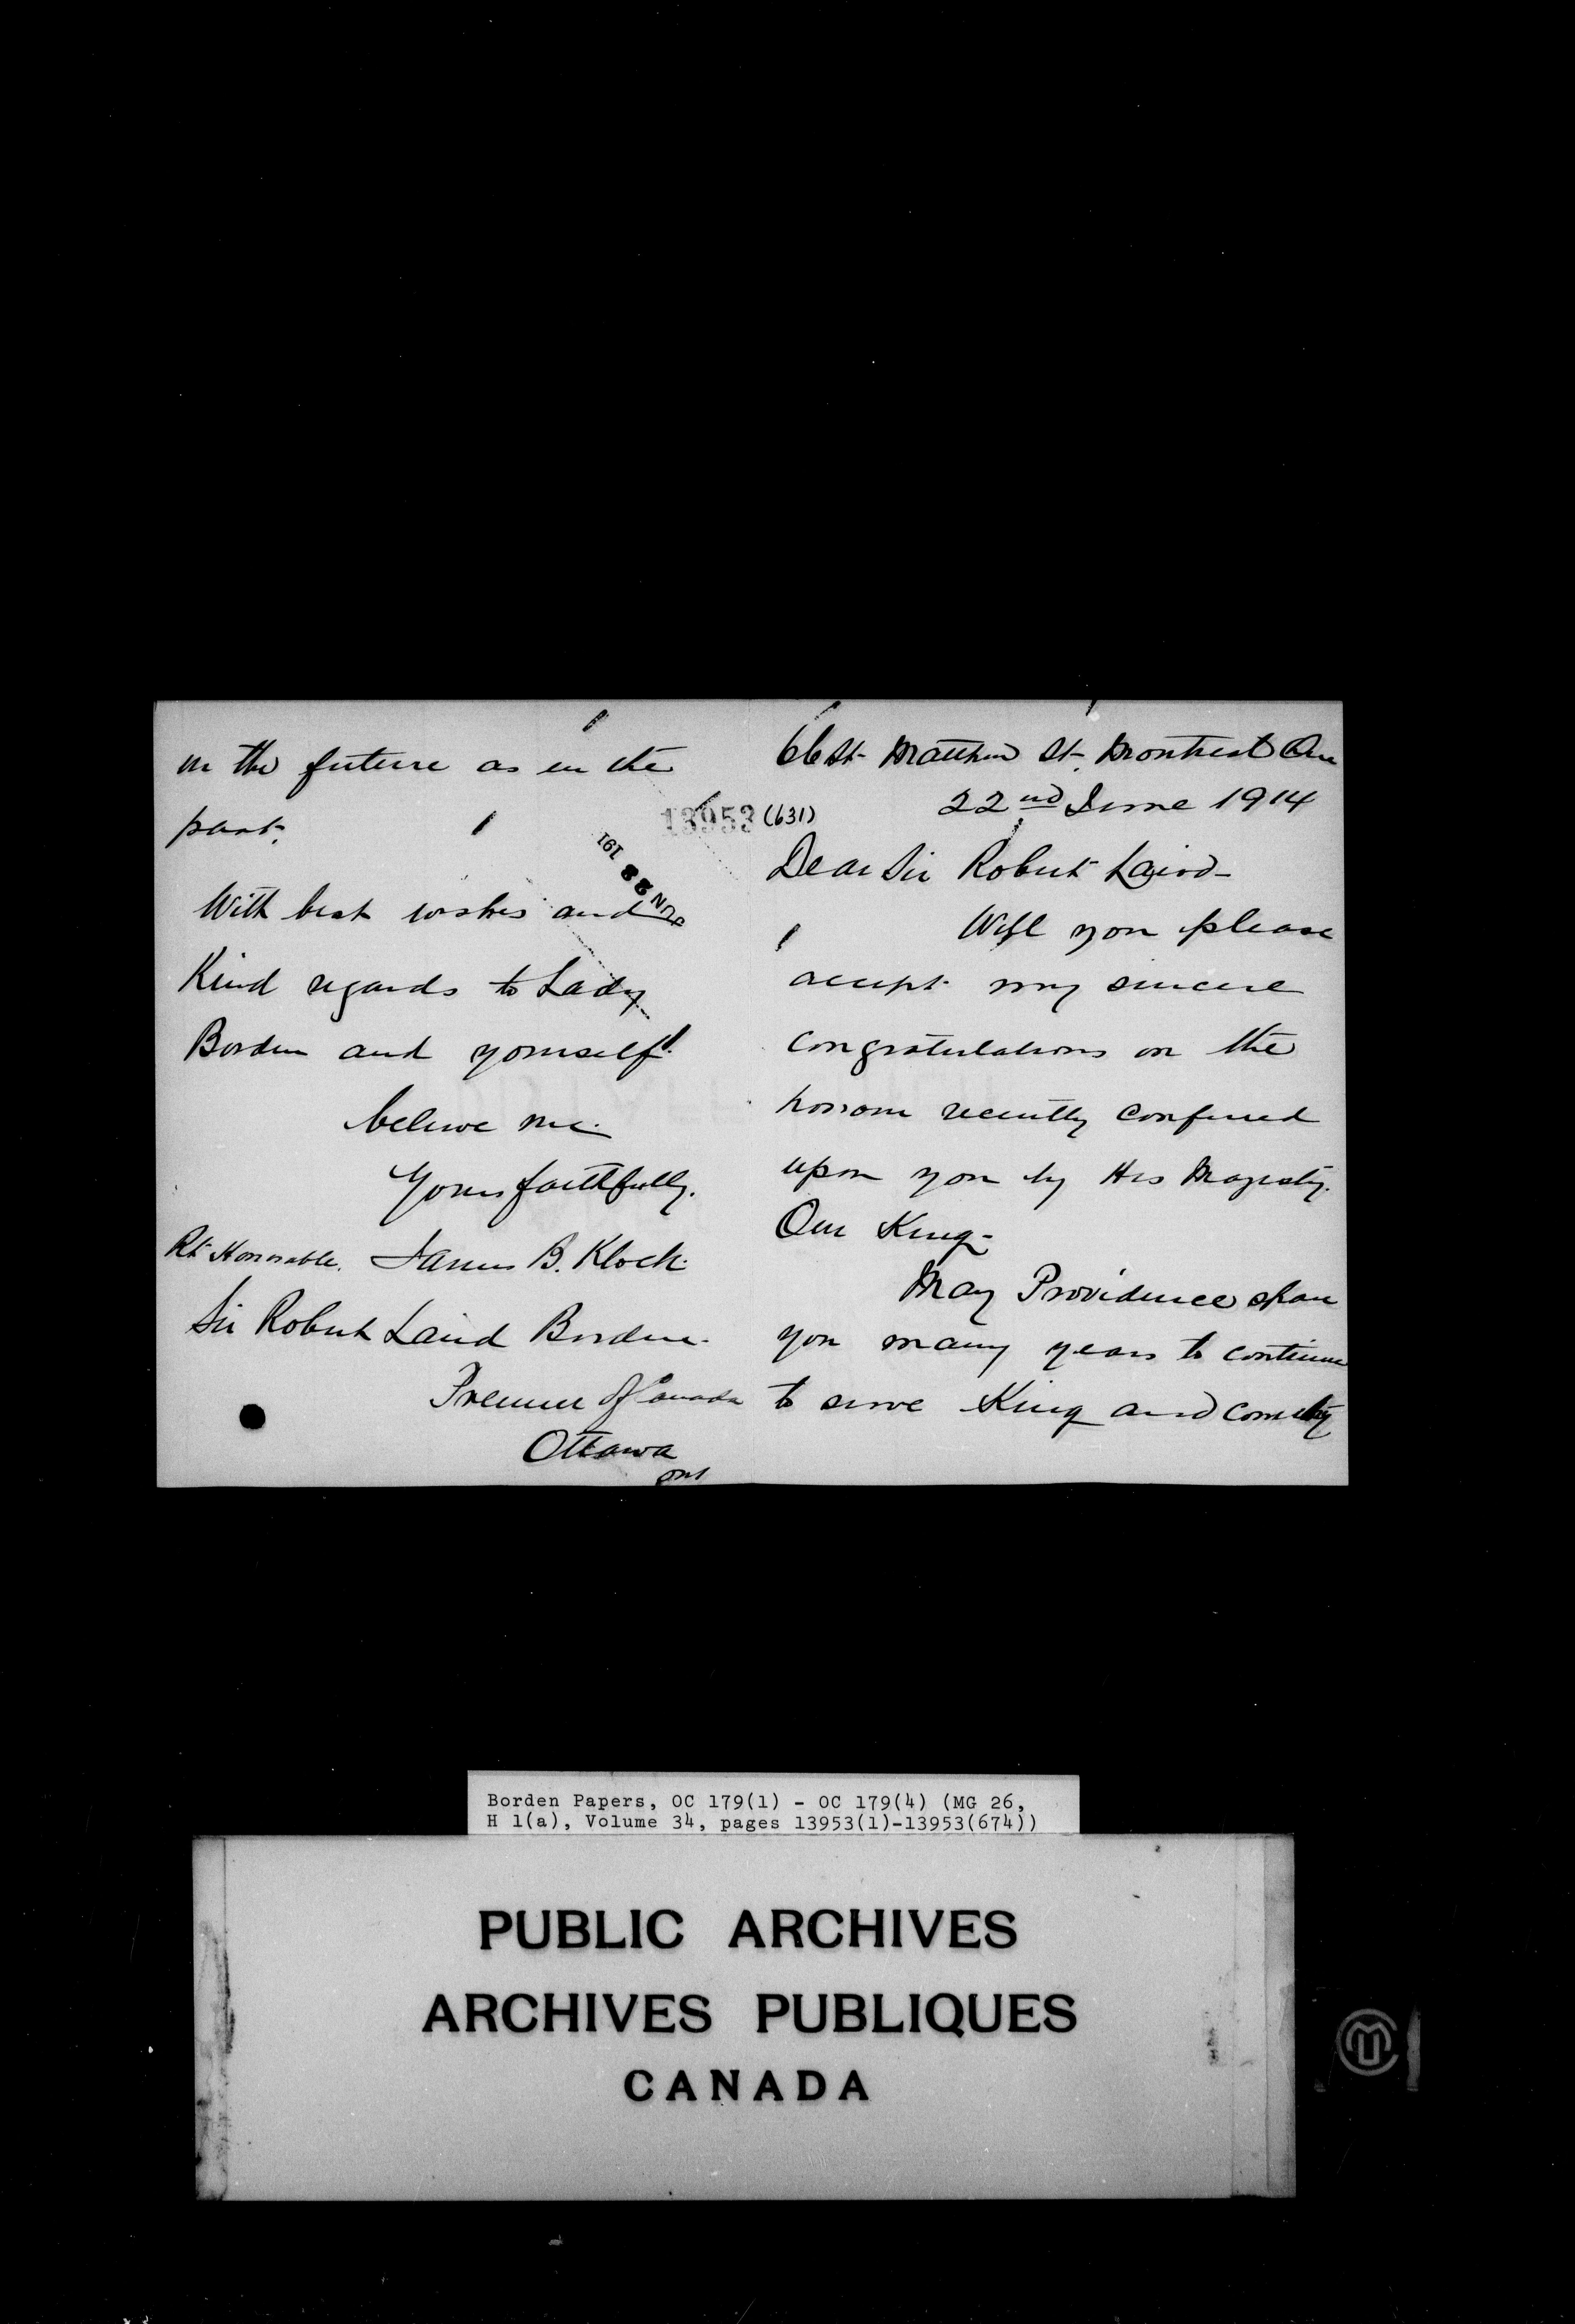 66 St. Matthew St. Montreal Que
22nd June 1914
Dear Sir Robert Laird-
Will you please
accept my sincere
congratulations on the
honour recently conferred
upon you by His Majesty.
Our King-
May Providence spare
you many years to continue
to serve King and country
in the future as in the
past.
13953 (631)
JUN 23 191
With best wishes and
Kind regards to Lady
Borden and yourself.
believe me.
Yours faithfully.
James B. Klock.
Rt Honorable.
Sir Robert Laird Borden.
Premier of Canada
Ottawa
Ont
Borden Papers, OC 179(1) - OC 179(4) (MG 26,
H 1(a), Volume 34, pages 13953(1)-13953(674))
PUBLIC ARCHIVES
ARCHIVES PUBLIQUES
CANADA